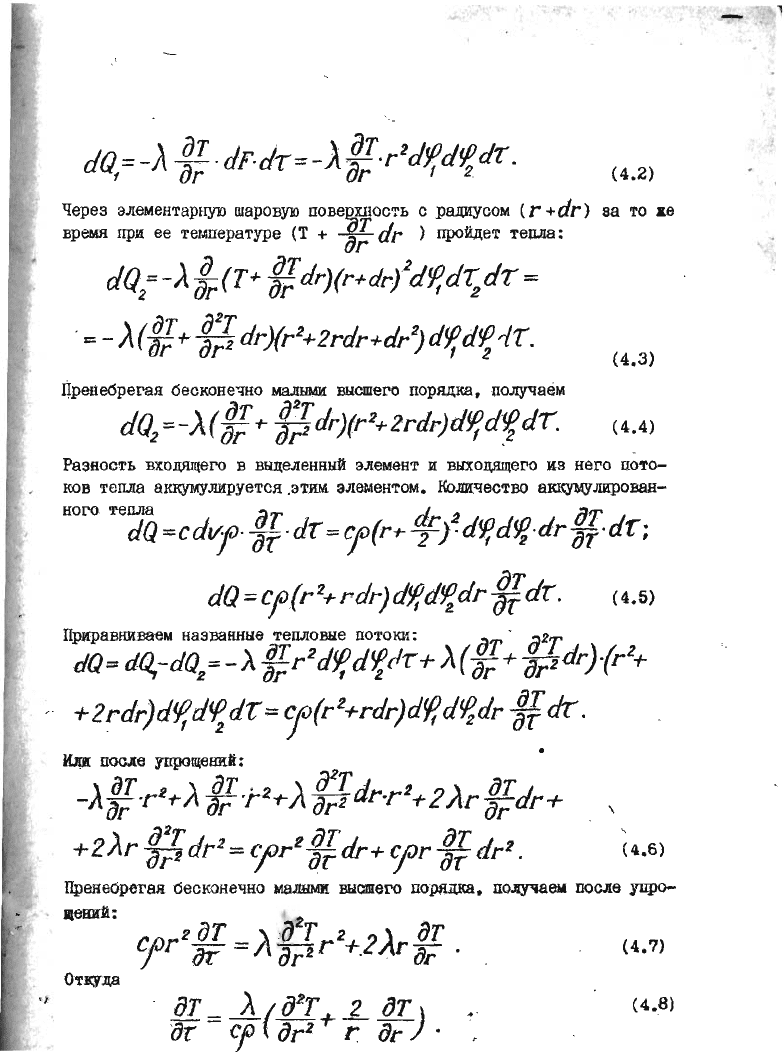 dQ₁ = -λ ∂T/∂r · dF·dτ = -λ ∂T/∂r · r²dφ₁dφ₂dτ. (4.2)
Через элементарную шаровую поверхность с радиусом (r+dr) за то же
время при ее температуре (T + ∂T/∂r dr ) пройдет тепла:
dQ₂ = -λ ∂/∂r (T + ∂T/∂r dr)(r+dr)²dφ₁dτ₂dτ =
= -λ(∂T/∂r + ∂²T/∂r² dr)(r²+2rdr+dr²)dφ₁dφ₂dτ. (4.3)
Пренебрегая бесконечно малыми высшего порядка, получаем
dQ₂ = -λ(∂T/∂r + ∂²T/∂r² dr)(r²+2rdr)dφ₁dφ₂dτ. (4.4)
Разность входящего в выделенный элемент и выходящего из него пото-
ков тепла аккумулируется этим элементом. Количество аккумулирован-
ного тепла
dQ = cdv·ρ· ∂T/∂τ · dτ = cρ(r + dr/2)²·dφ₁dφ₂·dr ∂T/∂τ · dτ;
dQ = cρ(r²+rdr)dφ₁dφ₂dr ∂T/∂τ dτ. (4.5)
Приравниваем названные тепловые потоки:
dQ = dQ₁-dQ₂ = -λ ∂T/∂r r²dφ₁dφ₂dτ + λ(∂T/∂r + ∂²T/∂r² dr)·(r²+
+2rdr)dφ₁dφ₂dτ = cρ(r²+rdr)dφ₁dφ₂dr ∂T/∂τ dτ.
Или после упрощений:
-λ ∂T/∂r · r² + λ ∂T/∂r · r² + λ ∂²T/∂r² dr·r² + 2λr ∂T/∂r dr +
+2λr ∂²T/∂r² dr² = cρr² ∂T/∂τ dr + cρr ∂T/∂τ dr². (4.6)
Пренебрегая бесконечно малыми высшего порядка, получаем после упро-
щений:
cρr² ∂T/∂τ = λ ∂²T/∂r² r² + 2λr ∂T/∂r . (4.7)
Откуда
∂T/∂τ = λ/cρ (∂²T/∂r² + 2/r ∂T/∂r). (4.8)